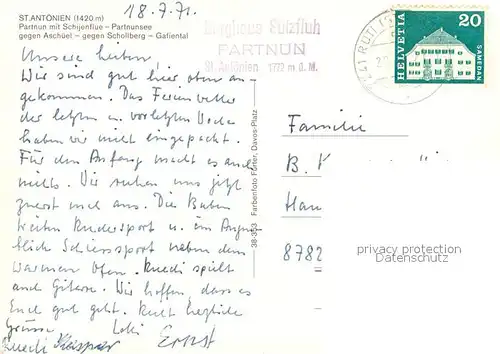 ST. ANTÖNIEN (1420 m)
Partnun mit Schijenflue – Partnunsee
gegen Aschüel – gegen Schollberg – Gafiental
18.7.71.
Berghaus Sulzfluh
PARTNUN
St. Antönien 1772 m ü. M.
HELVETIA
20
SAMEDAN
RÜTI
Unsere lieben,
Wir sind gut hier oben an-
gekommen. Das Ferienwetter
der letzten u. vorletzten Woche
haben wir nicht eingepackt.
Für den Anfang macht es auch
nichts. Wir ruhen uns jetzt
zuerst mal aus. Die Buben
treiben Rudersport u. im Augen
blick Schiesssport neben dem
warmen Ofen. Ruedi spielt
auch Gitarre. Wir hoffen dass es
Euch gut geht. Recht herzliche
Grüsse
Ruedi Kaspar Ernst
38-353 Farbenfoto Furter, Davos-Platz
Familie
B. K
Hau
8782
privacy protection
Datenschutz